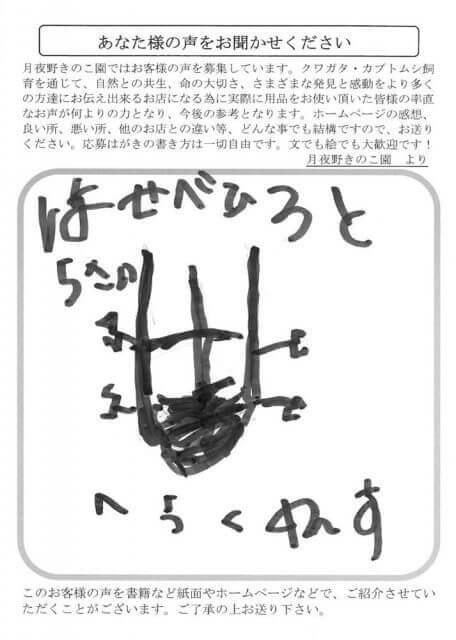 あなた様の声をお聞かせください
月夜野きのこ園ではお客様の声を募集しています。クワガタ・カブトムシ飼
育を通じて、自然との共生、命の大切さ、さまざまな発見と感動をより多く
の方達にお伝え出来るお店になる為に実際に用品をお使い頂いた皆様の率直
なお声が何よりの力となり、今後の参考となります。ホームページの感想、
良い所、悪い所、他のお店との違い等、どんな事でも結構ですので、お送り
ください。応募はがきの書き方は一切自由です。文でも絵でも大歓迎です！
月夜野きのこ園　より
はせべひろと
5さい
へらくれす
このお客様の声を書籍など紙面やホームページなどで、ご紹介させてい
ただくことがございます。ご了承の上お送り下さい。